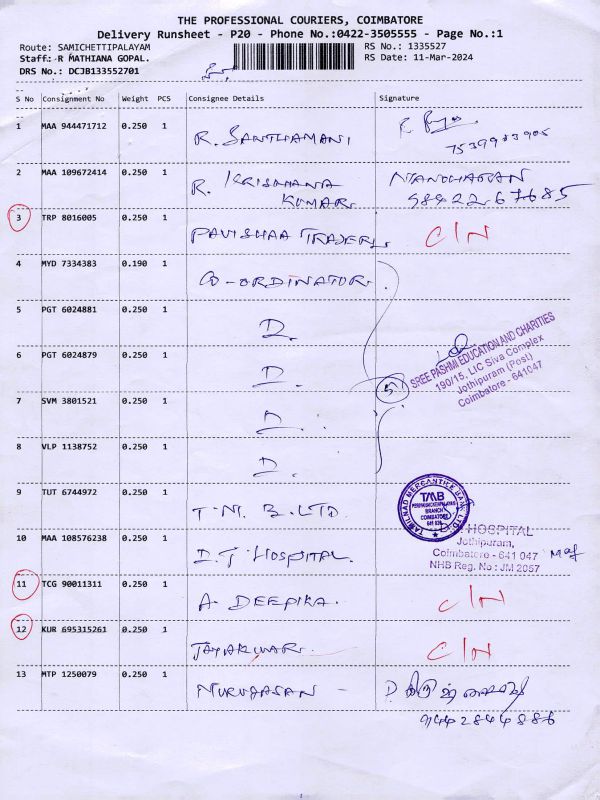 THE PROFESSIONAL COURIERS, COIMBATORE
Delivery Runsheet - P20 - Phone No.:0422-3505555 - Page No.:1
Route: SAMICHETTIPALAYAM
RS No.: 1335527
Staff.: R MATHIANA GOPAL.
RS Date: 11-Mar-2024
DRS No.: DCJB133552701
S No Consignment No Weight PCS Consignee Details Signature
1 MAA 944471712 0.250 1 R. SANTHAMANI
7539983905
2 MAA 109672414 0.250 1 R. KRISHANA
KUMAR
9842267685
3 TRP 8016005 0.250 1 PAVISHAA C/N
4 MYD 7334383 0.190 1 CO-ORDINATOR.
5 PGT 6024881 0.250 1 D.
6 PGT 6024879 0.250 1 D.
5
SREE PASHMI EDUCATION AND CHARITIES
190/15, LIC Siva Complex
Jothipuram (Post)
Coimbatore - 641047
7 SVM 3801521 0.250 1 D.
8 VLP 1138752 0.250 1 D.
9 TUT 6744972 0.250 1 T.M.B.LTD
TAMILNAD MERCANTILE BANK LTD.
TMB
BRANCH
COIMBATORE
10 MAA 108576238 0.250 1 D.J HOSPITAL.
HOSPITAL
Jothipuram,
Coimbatore - 641 047
NHB Reg. No : JM 2057
11 TCG 90011311 0.250 1 A DEEPIKA. C/N
12 KUR 695315261 0.250 1 JAYAKUMARI. C/N
13 MTP 1250079 0.250 1 MURUGASAN -
9442844886